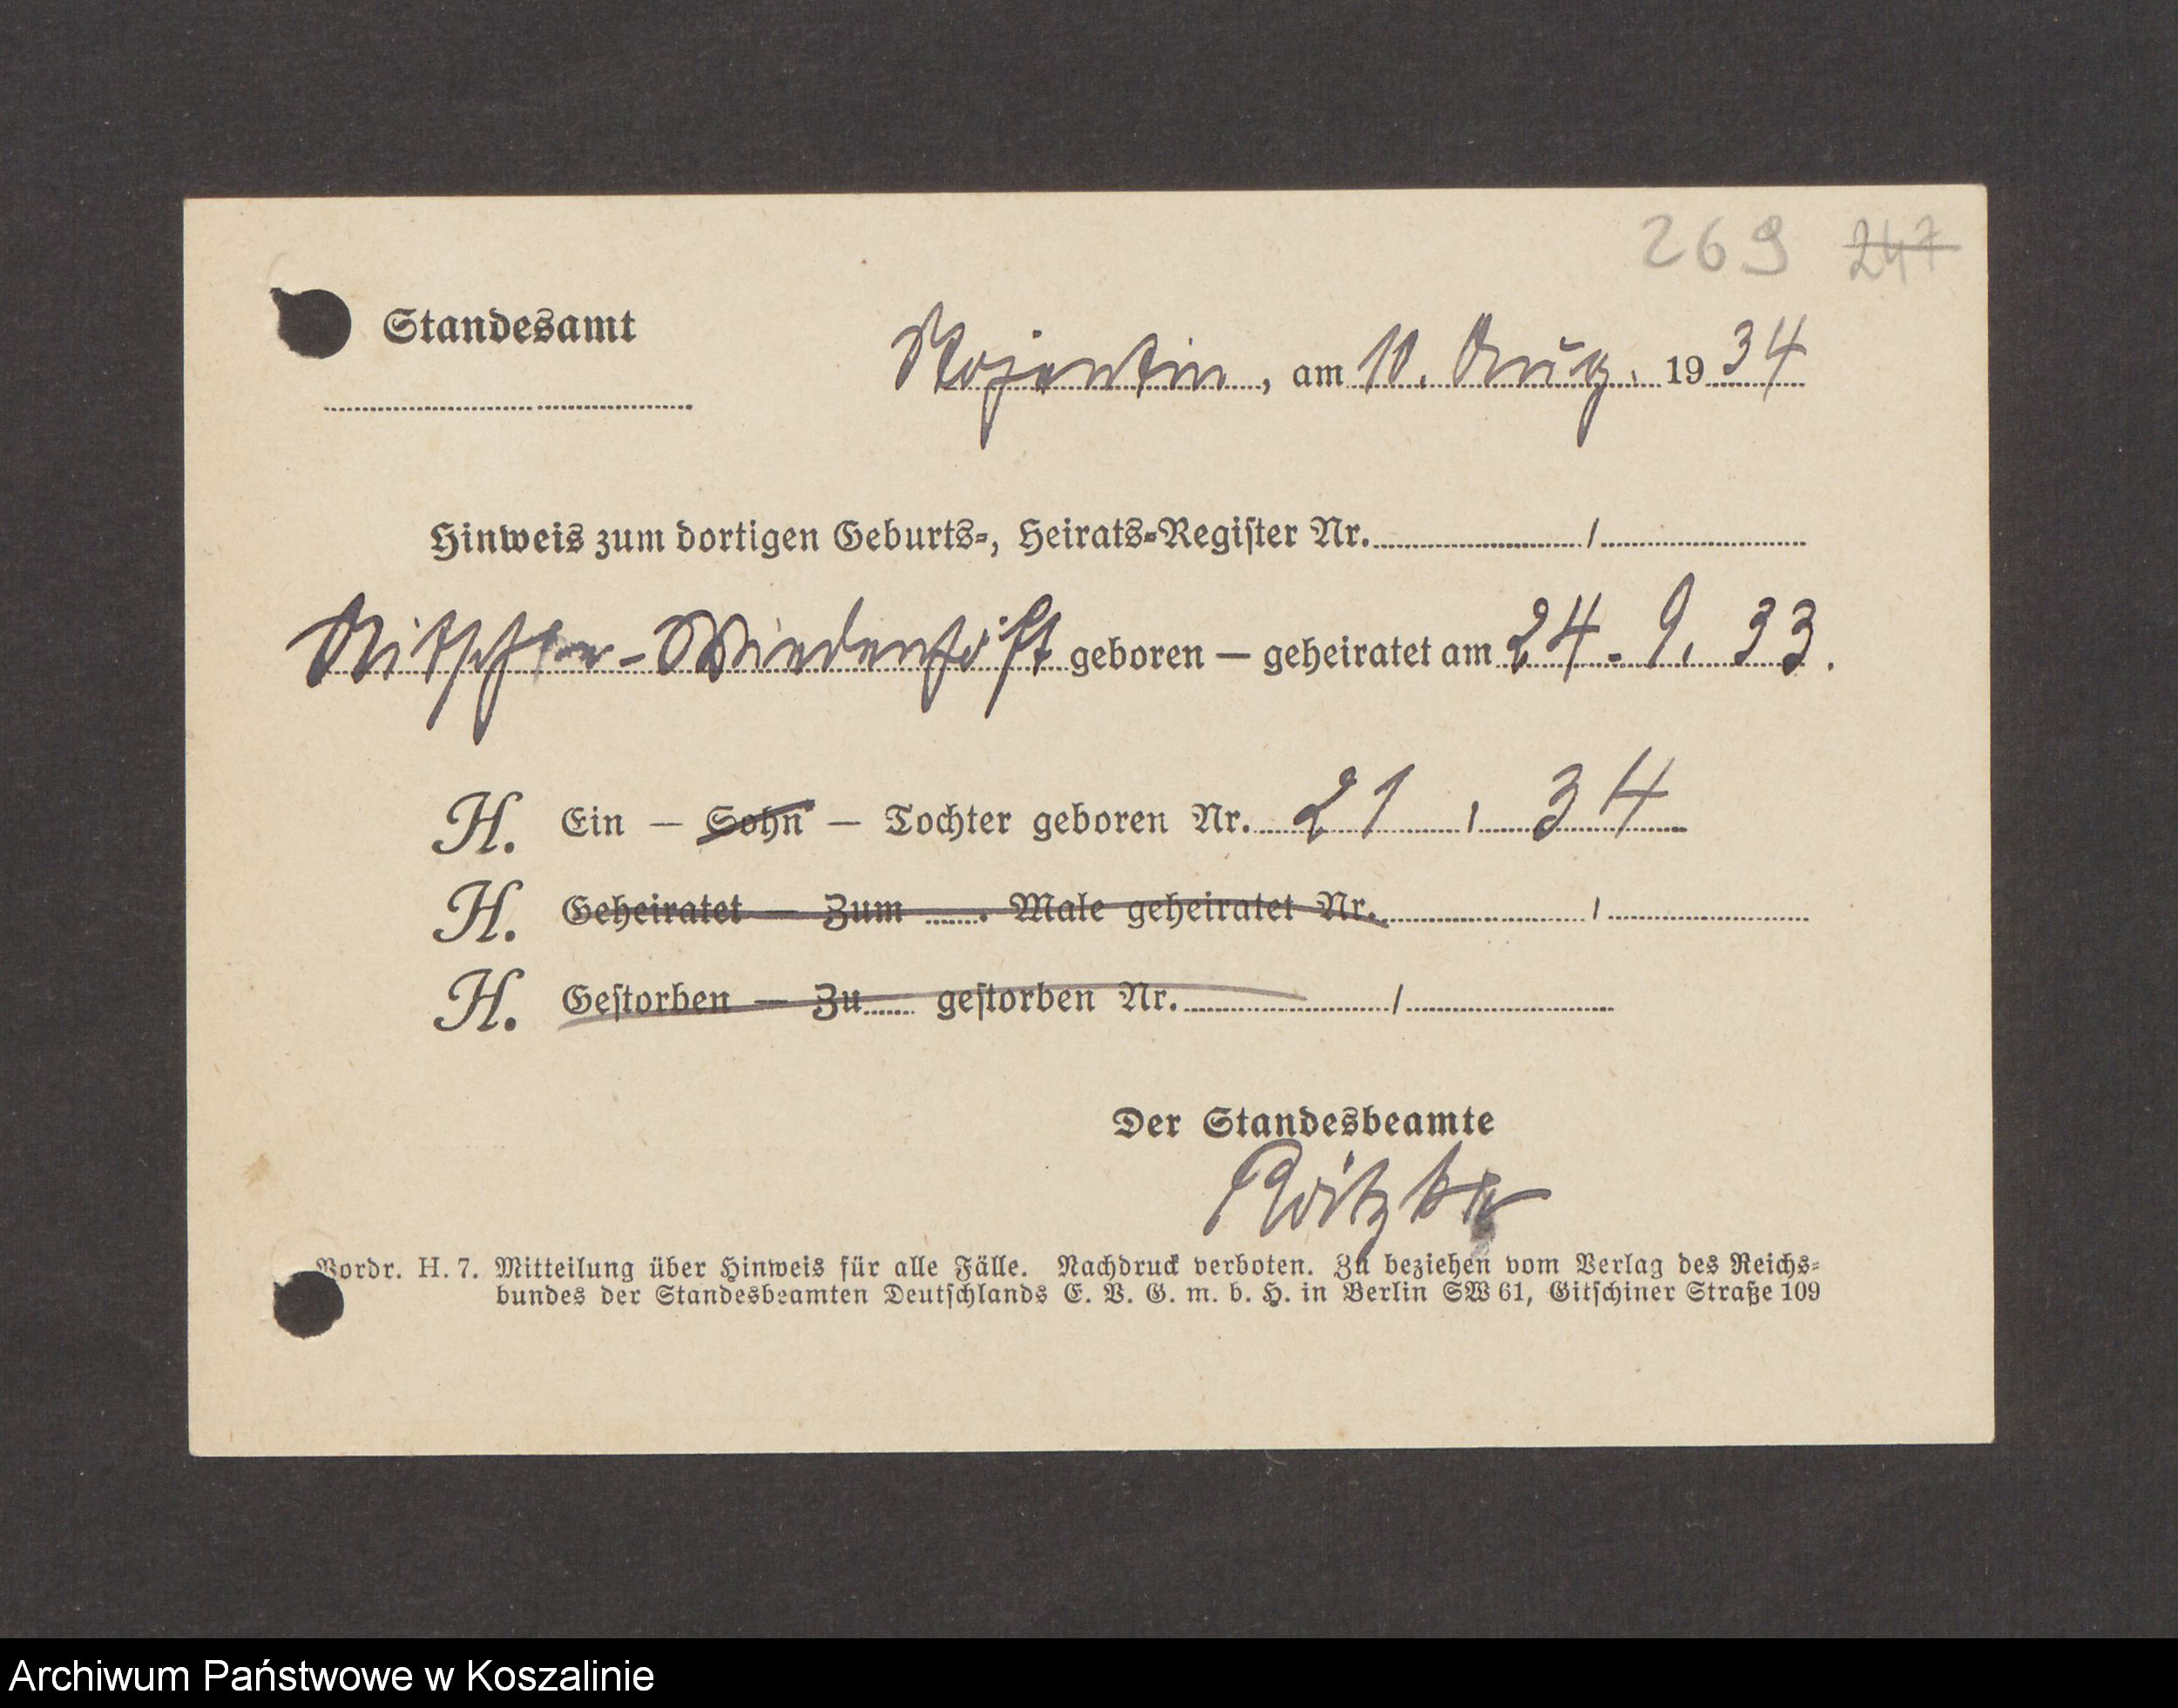 269 247
Standesamt
Rojentin, am 10. Aug. 1934
Hinweis zum dortigen Geburts-, Heirats-Register Nr. /
geboren — geheiratet am 24. 9. 33.
H. Ein — Sohn — Tochter geboren Nr. 21 / 34
H. Geheiratet — Zum . Male geheiratet Nr. /
H. Gestorben — Zu gestorben Nr. /
Der Standesbeamte
Vordr. H. 7. Mitteilung über Hinweis für alle Fälle. Nachdruck verboten. Zu beziehen vom Verlag des Reichs-
bundes der Standesbeamten Deutschlands E. V. G. m. b. H. in Berlin SW 61, Gitschiner Straße 109
Archiwum Państwowe w Koszalinie